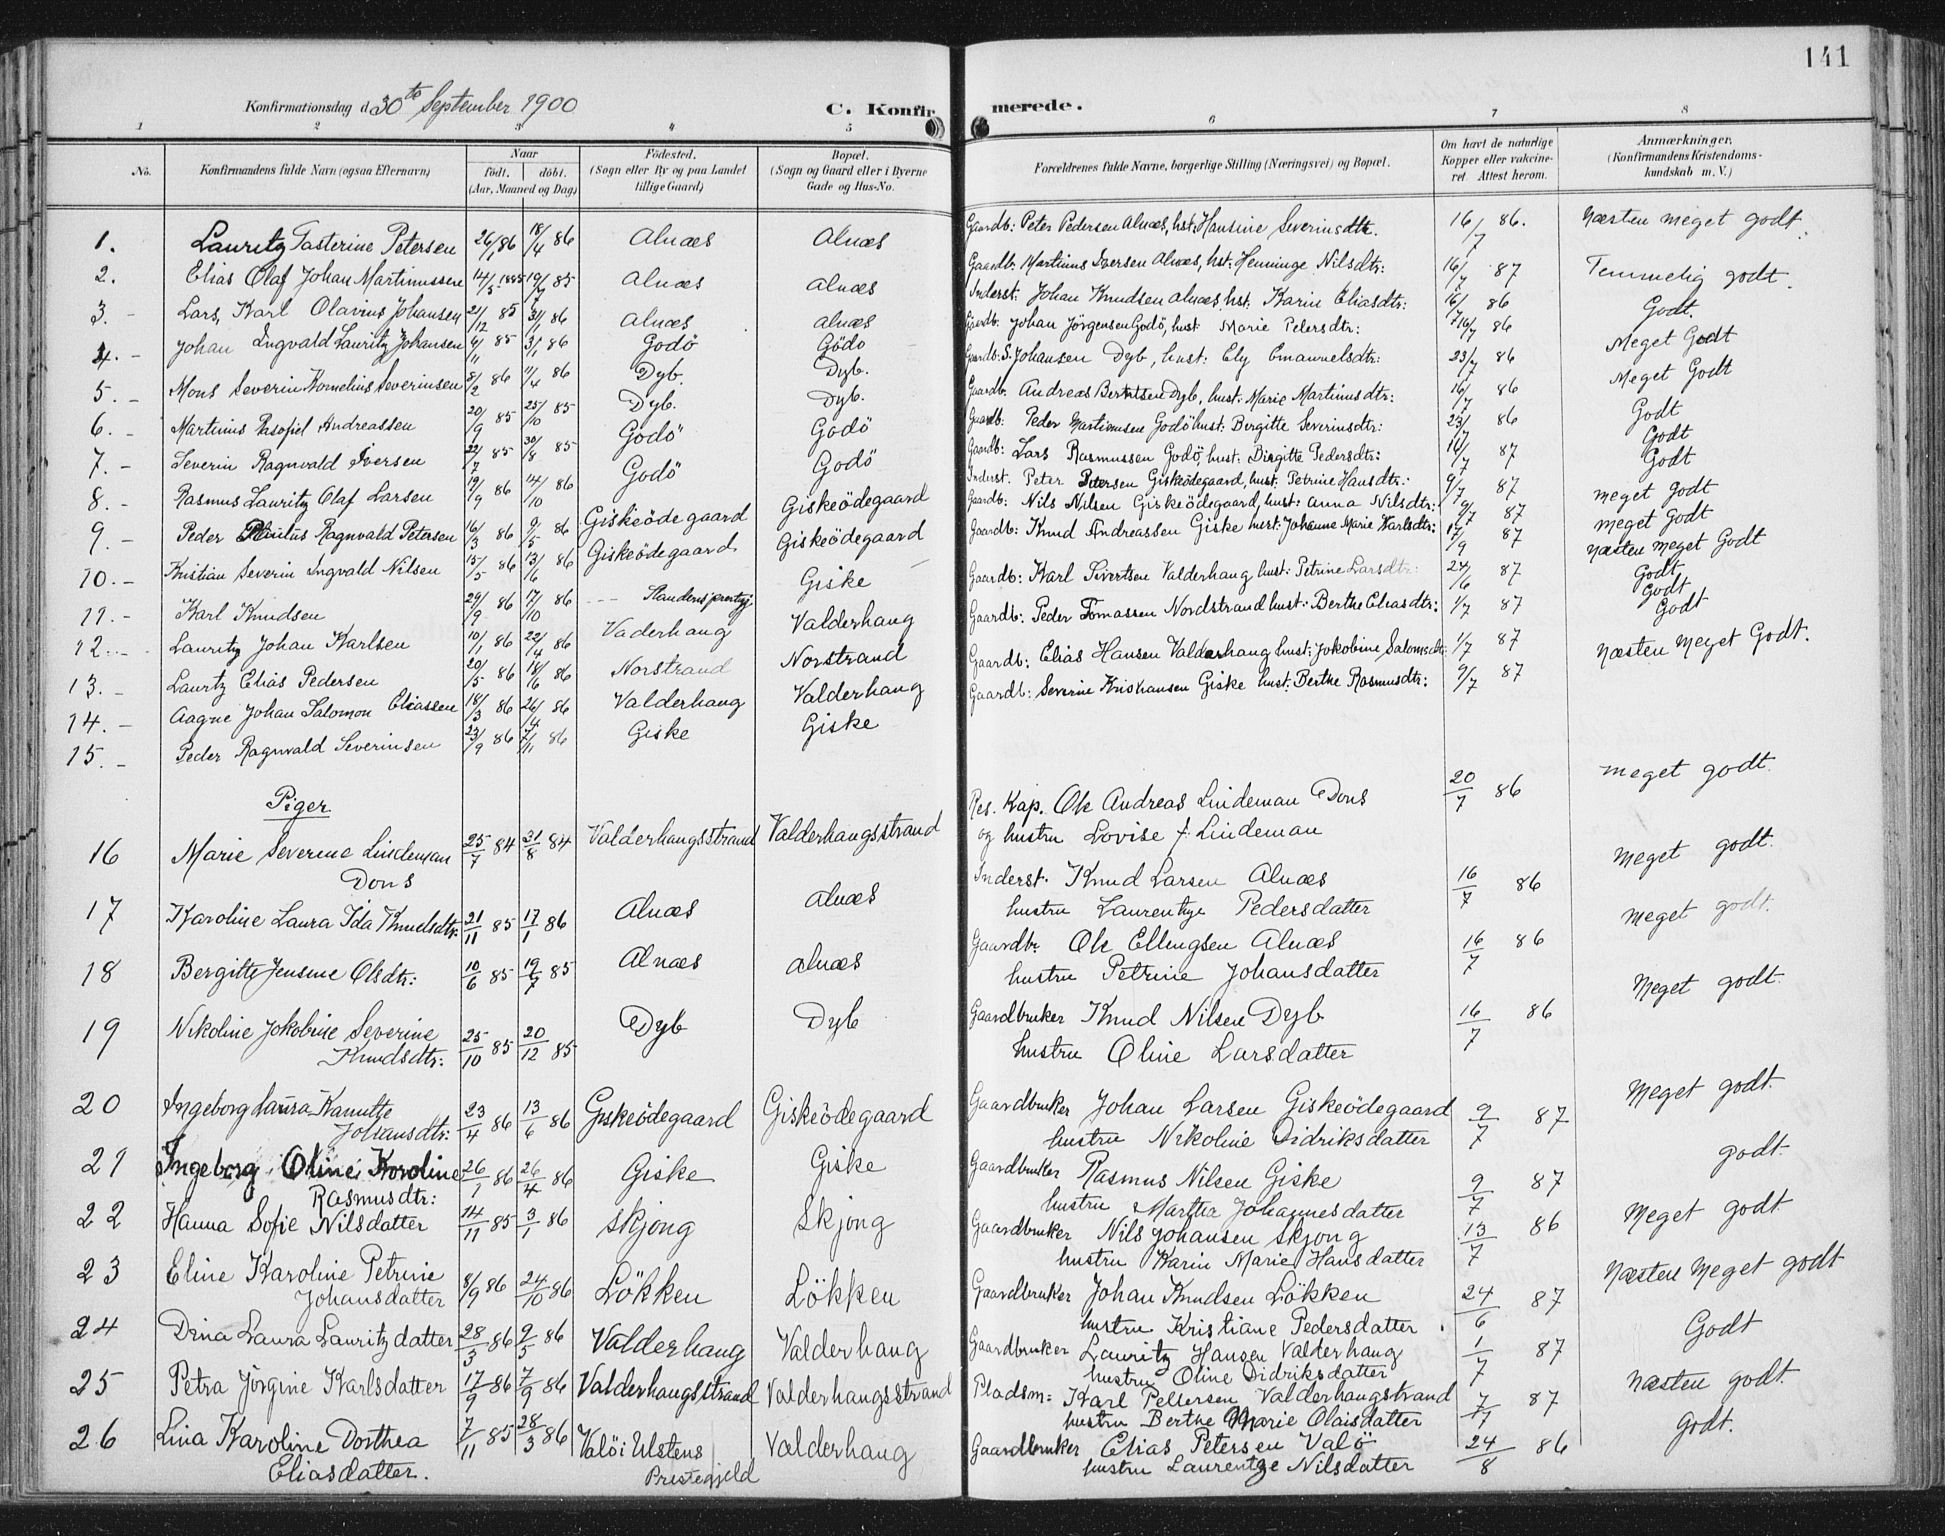 141
Konfirmationsdag d. 30te September 1900
C. Konfirmerede.
1 2 3 4 5 6 7 8
No. Konfirmandens fulde Navn (ogsaa Efternavn) Naar født. døbt. (Aar, Maaned og Dag) Fødested. (Sogn eller By og paa Landet tillige Gaard) Bopæl. (Sogn og Gaard eller i Byerne Gade og Hus-No. Forældrenes fulde Navne, borgerlige Stilling (Næringsvei) og Bopæl. Om havt de naturlige Kopper eller vakcineret. Attest herom. Anmærkninger. (Konfirmandens Kristendomskundskab m. V.)
1. Lauritz Tasterine Petersen 26/1 86 18/4 86 Alnæs Alnæs Gaardb: Peter Pedersen Alnæs, hst: Hansine Severinsdtr. 16/7 86. Næsten meget godt.
2. Elias Olaf Johan Martinussen 14/5 1885 19/7 85 Alnæs Alnæs Gaardb. Martinus Iversen Alnæs, hst: Henninge Nilsdtr: 16/7 87 Temmelig godt.
3. - Lars, Karl Olavius Johansen 21/12 85 31/1 86 Alnæs Alnæs Inderst: Johan Knudsen Alnæs hst: Karin Eliasdtr: 16/7 86 Godt.
4. - Johan Ingvald Lauritz Johansen 6/11 85 3/1 86 Godö Godö Gaardb. Johan Jörgensen Godö, hust: Marie Petersdtr: 16/7 86 Meget Godt
5. - Mons Severin Kornelius Severinsen 8/2 86 11/4 86 Dyb. Dyb. Gaardb: S. Johansen Dyb, hust: Ely Emanuelsdtr: 23/7 86 Meget Godt
6. - Martinus Andreassen 20/9 85 25/10 85 Dyb. Dyb. Gaardb. Andreas Berntsen Dyb, hust: Marie Martinusdtr: 16/7 86 Godt
7. - Severin Ragnvald Iversen 22/7 85 30/8 85 Godö Godö Gaardb: Peder Martinusen Godö hust: Bergitte Severinsdtr: 23/7 86 Godt
8. - Rasmus Lauritz Olaf Larsen 19/9 86 14/10 86 Godö Godö Gaardb: Lars Rasmussen Godö, hust: Birgitte Pedersdtr: 16/7 87 Godt
9. - Peder Paulus Ragnvald Petersen 16/3 86 9/5 86 Giskeödegaard Giskeödegaard Inderst. Peter Petersen Giskeödegaard, hust: Petrine Hansdtr: 9/7 87 meget godt
10. - Kristian Severin Ingvald Nilsen 15/5 86 13/6 86 Giskeödegaard Giskeödegaard Gaardb: Nils Nilsen Giskeödegaard, hust: Anna Nilsdtr: 9/7 87 meget Godt
11. - Karl Knudsen 29/9 86 17/10 86 Giske Gaardb: Knud Andreassen Giske hust: Johanne Marie Karlsdtr: 17/9 87 Næsten Meget Godt
12. - Lauritz Johan Karlsen 10/1 86 22/4 86 Vaderhaug Valderhaug Gaardb: Karl Sivertsen Valderhaug hust: Petrine Larsdtr: 24/6 87 Godt
13. - Lauritz Elias Pedersen 20/5 86 18/6 86 Norstrand Norstrand Gaardb: Peder Tomassen Nordstrand hust: Berthe Eliasdtr: 1/7 87 Godt
14. - Aagne Johan Salomon Eliassen 18/3 86 26/4 86 Valderhaug Valderhaug Gaardb: Elias Hansen Valderhaug hust: Jokobine Salomsdtr: 1/7 87 Godt
15. - Peder Ragnvald Severinsen 23/9 86 7/11 86 Giske Giske Gaardb: Severin Kristiansen Giske hust: Berthe Rasmusdtr: 9/7 87 Næsten Meget Godt.
Piger
16 Marie Severine Lindeman Dons 25/7 84 31/8 84 Valderhaugsstrand Valderhaugsstrand Res. Kap. Ole Andreas Lindeman Dons
og hustru Lovise f. Lindeman 20/7 86 meget godt.
17 Karoline Laura Ida Knudsdtr. 21/11 85 17/1 86 Alnæs Alnæs Inderst. Knud Larsen Alnæs
hustru Laurentze Pedersdatter 16/7 86 meget godt.
18 Bergitte Jensine Olsdtr: 10/6 85 19/7 85 Alnæs Alnæs Gaardbr Ole Ellingsen Alnæs
hustru Petrine Johansdatter 16/7 86 meget godt.
19 Nikoline Jokobine Severine Knudsdtr: 25/10 85 20/12 85 Dyb Dyb Gaardbruker Knud Nilsen Dyb
hustru Oline Larsdatter 16/7 86 Meget godt.
20 Ingeborg Laura Kanutte Johansdtr: 23/4 86 13/6 86 Giskeödegaard Giskeödegaard Gaardbruker Johan Larsen Giskeödegaard
hustru Nikoline Didriksdatter 9/7 87 Meget godt.
21 Ingeborg Oline Karoline Rasmusdtr: 26/1 86 26/4 86 Giske Giske Gaardbruker Rasmus Nilsen Giske
hustru Martha Johannesdatter 9/7 87 godt.
22 Hanna Sofie Nilsdatter 14/11 85 3/1 86 Skjong Skjong Gaardbruker Nils Johansen Skjong
hustru Karin Marie Hansdatter 13/7 86 Meget godt.
23 Eline Karoline Petrine Johansdatter 8/9 86 24/10 86 Lökken Lökken Gaardbruker Johan Knudsen Lökken
hustru Kristiane Pedersdatter. 24/6 87 Næsten Meget godt
24 Dina Laura Lauritzdatter 28/3 86 9/5 86 Valderhaug Valderhaug Gaardbruker Lauritz Hansen Valderhaug
hustru Oline Didriksdatter 1/7 87 Godt
25 Petra Jörgine Karlsdatter 17/9 86 Valderhaugsstrand Valderhaugsstrand Pladsm: Karl Pettersen Valderhaugstrand
hustru Berthe Marie Olaisdatter 7/7 87 Næsten godt.
26 Lina Karoline Dorthea Eliasdatter. 7/11 85 28/3 86 Valö i Ulstens Prestegjeld Valderhaug Gaardbruker Elias Petersen Valö
hustru Laurentze Nilsdatter 24/8 86 Godt.